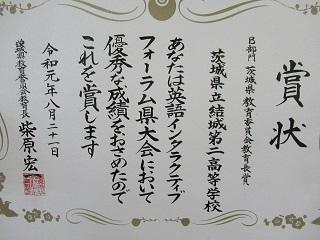 賞状
B部門 茨城県教育委員会教育長賞
茨城県立結城第二高等学校
あなたは英語インタラクティブ
フォーラム県大会において
優秀な成績をおさめたので
これを賞します
令和元年八月二十一日
茨城県教育委員会教育長 柴原宏一